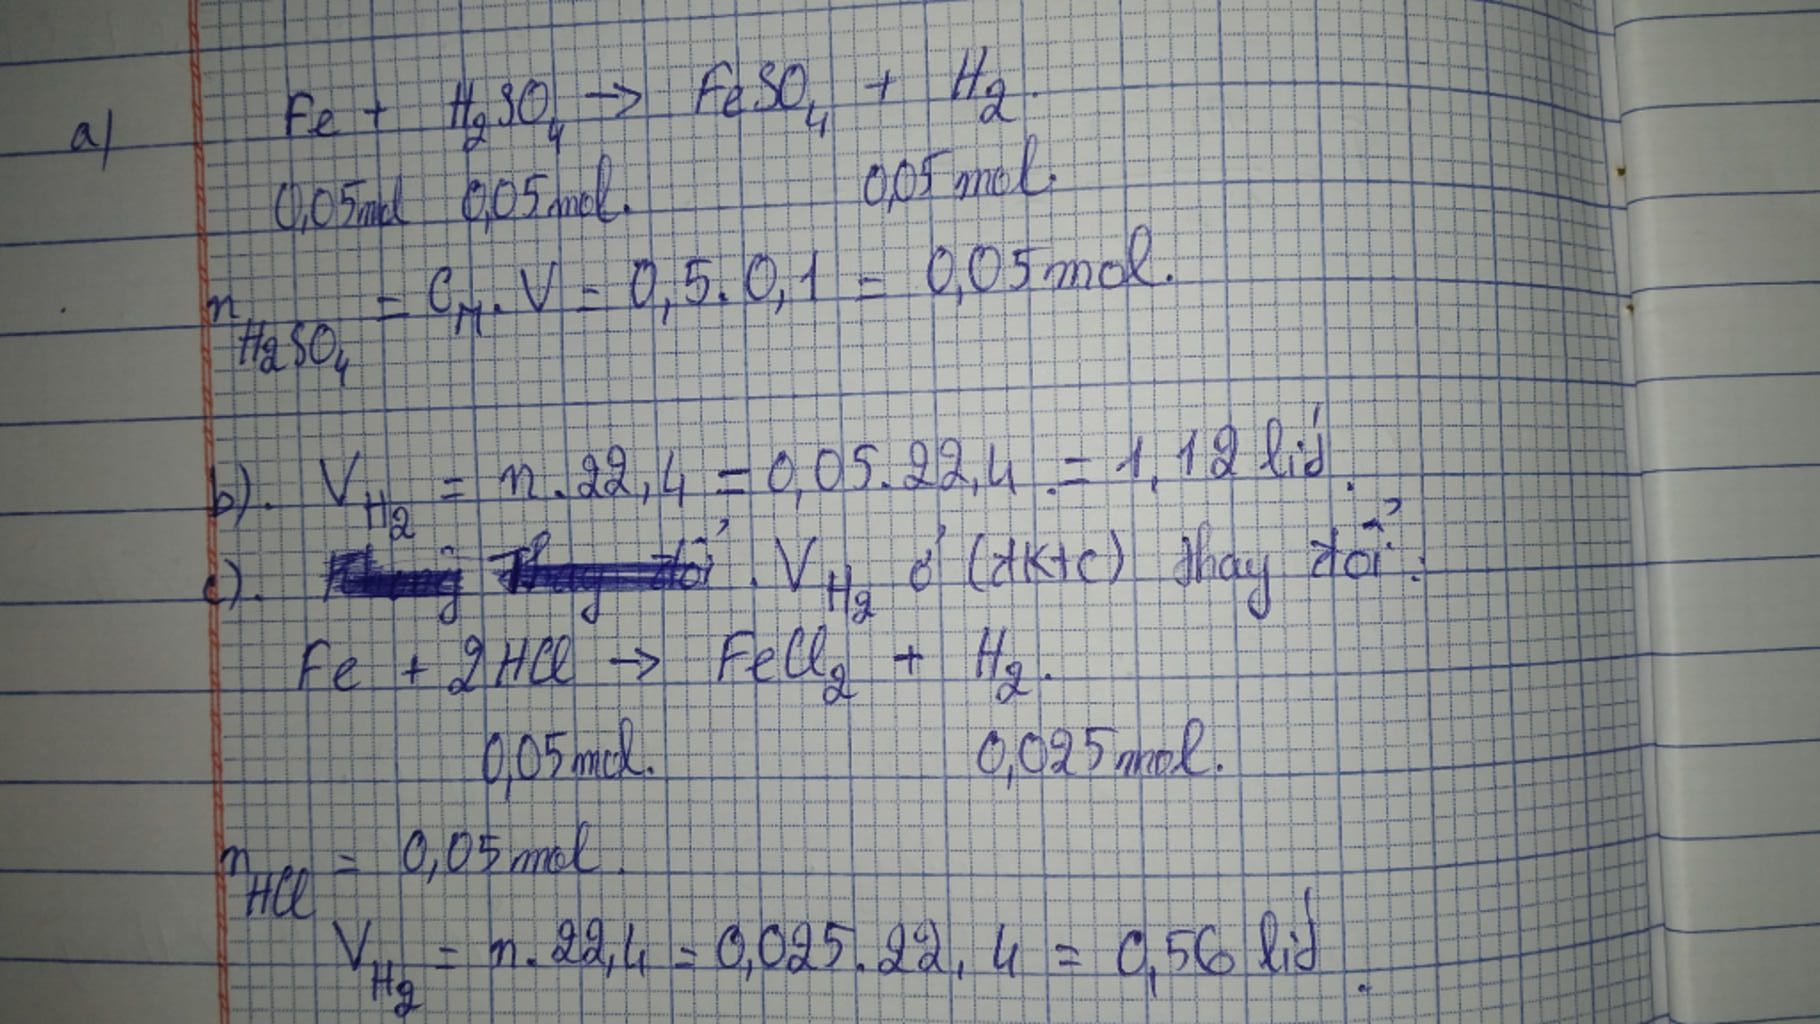 a) Fe + H₂SO₄ → FeSO₄ + H₂.
0,05mol 0,05mol. 0,05mol.
n H₂SO₄ = C_M. V = 0,5.0,1 = 0,05mol.
b). V H₂ = n.22,4 = 0,05.22,4 = 1,12 lít.
c). V H₂ ở (đktc) thay đổi.
Fe + 2HCl → FeCl₂ + H₂.
0,05mol. 0,025mol.
n HCl = 0,05mol.
V H₂ = n.22,4 = 0,025.22,4 = 0,56 lít.